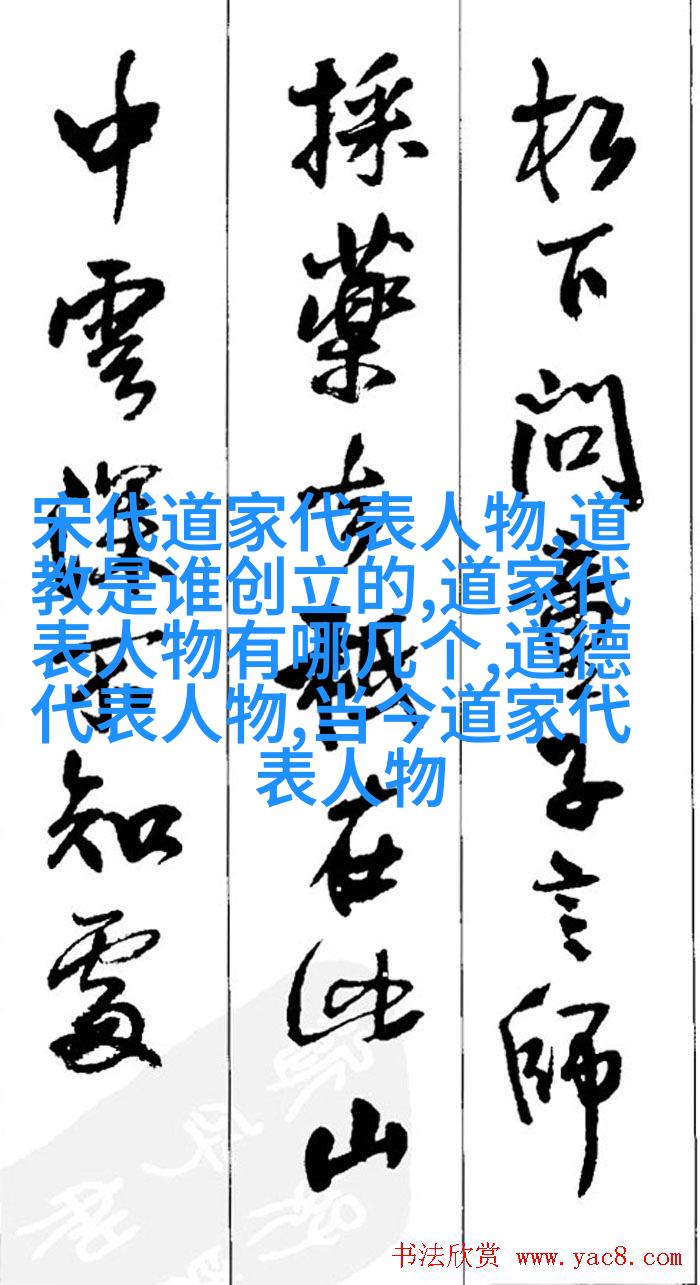 松下问童子言師
採藥去祗在此山
中雲深不知處
宋代道家代表人物,道
教是谁创立的,道家代
表人物有哪几个,道德
代表人物,当今道家代
表人物
书法欣赏 www.yac8.com